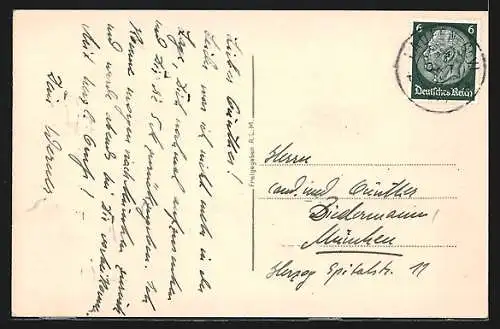 Lieber Günther!
Leider war ich nicht mehr in der
Lage, Dich nochmal aufzusuchen
und Dir die 5.- zurückzugeben. Ich
komme morgen nach München zurück
und werde abends bei Dir vorbeikommen.
Mit herzl. Gruß!
Dein Werner.
Freigegeben R.L.M.
6 6
Deutsches Reich
Herrn
cand. med. Günther
Biedermann
München
Herzog Spitalstr. 11